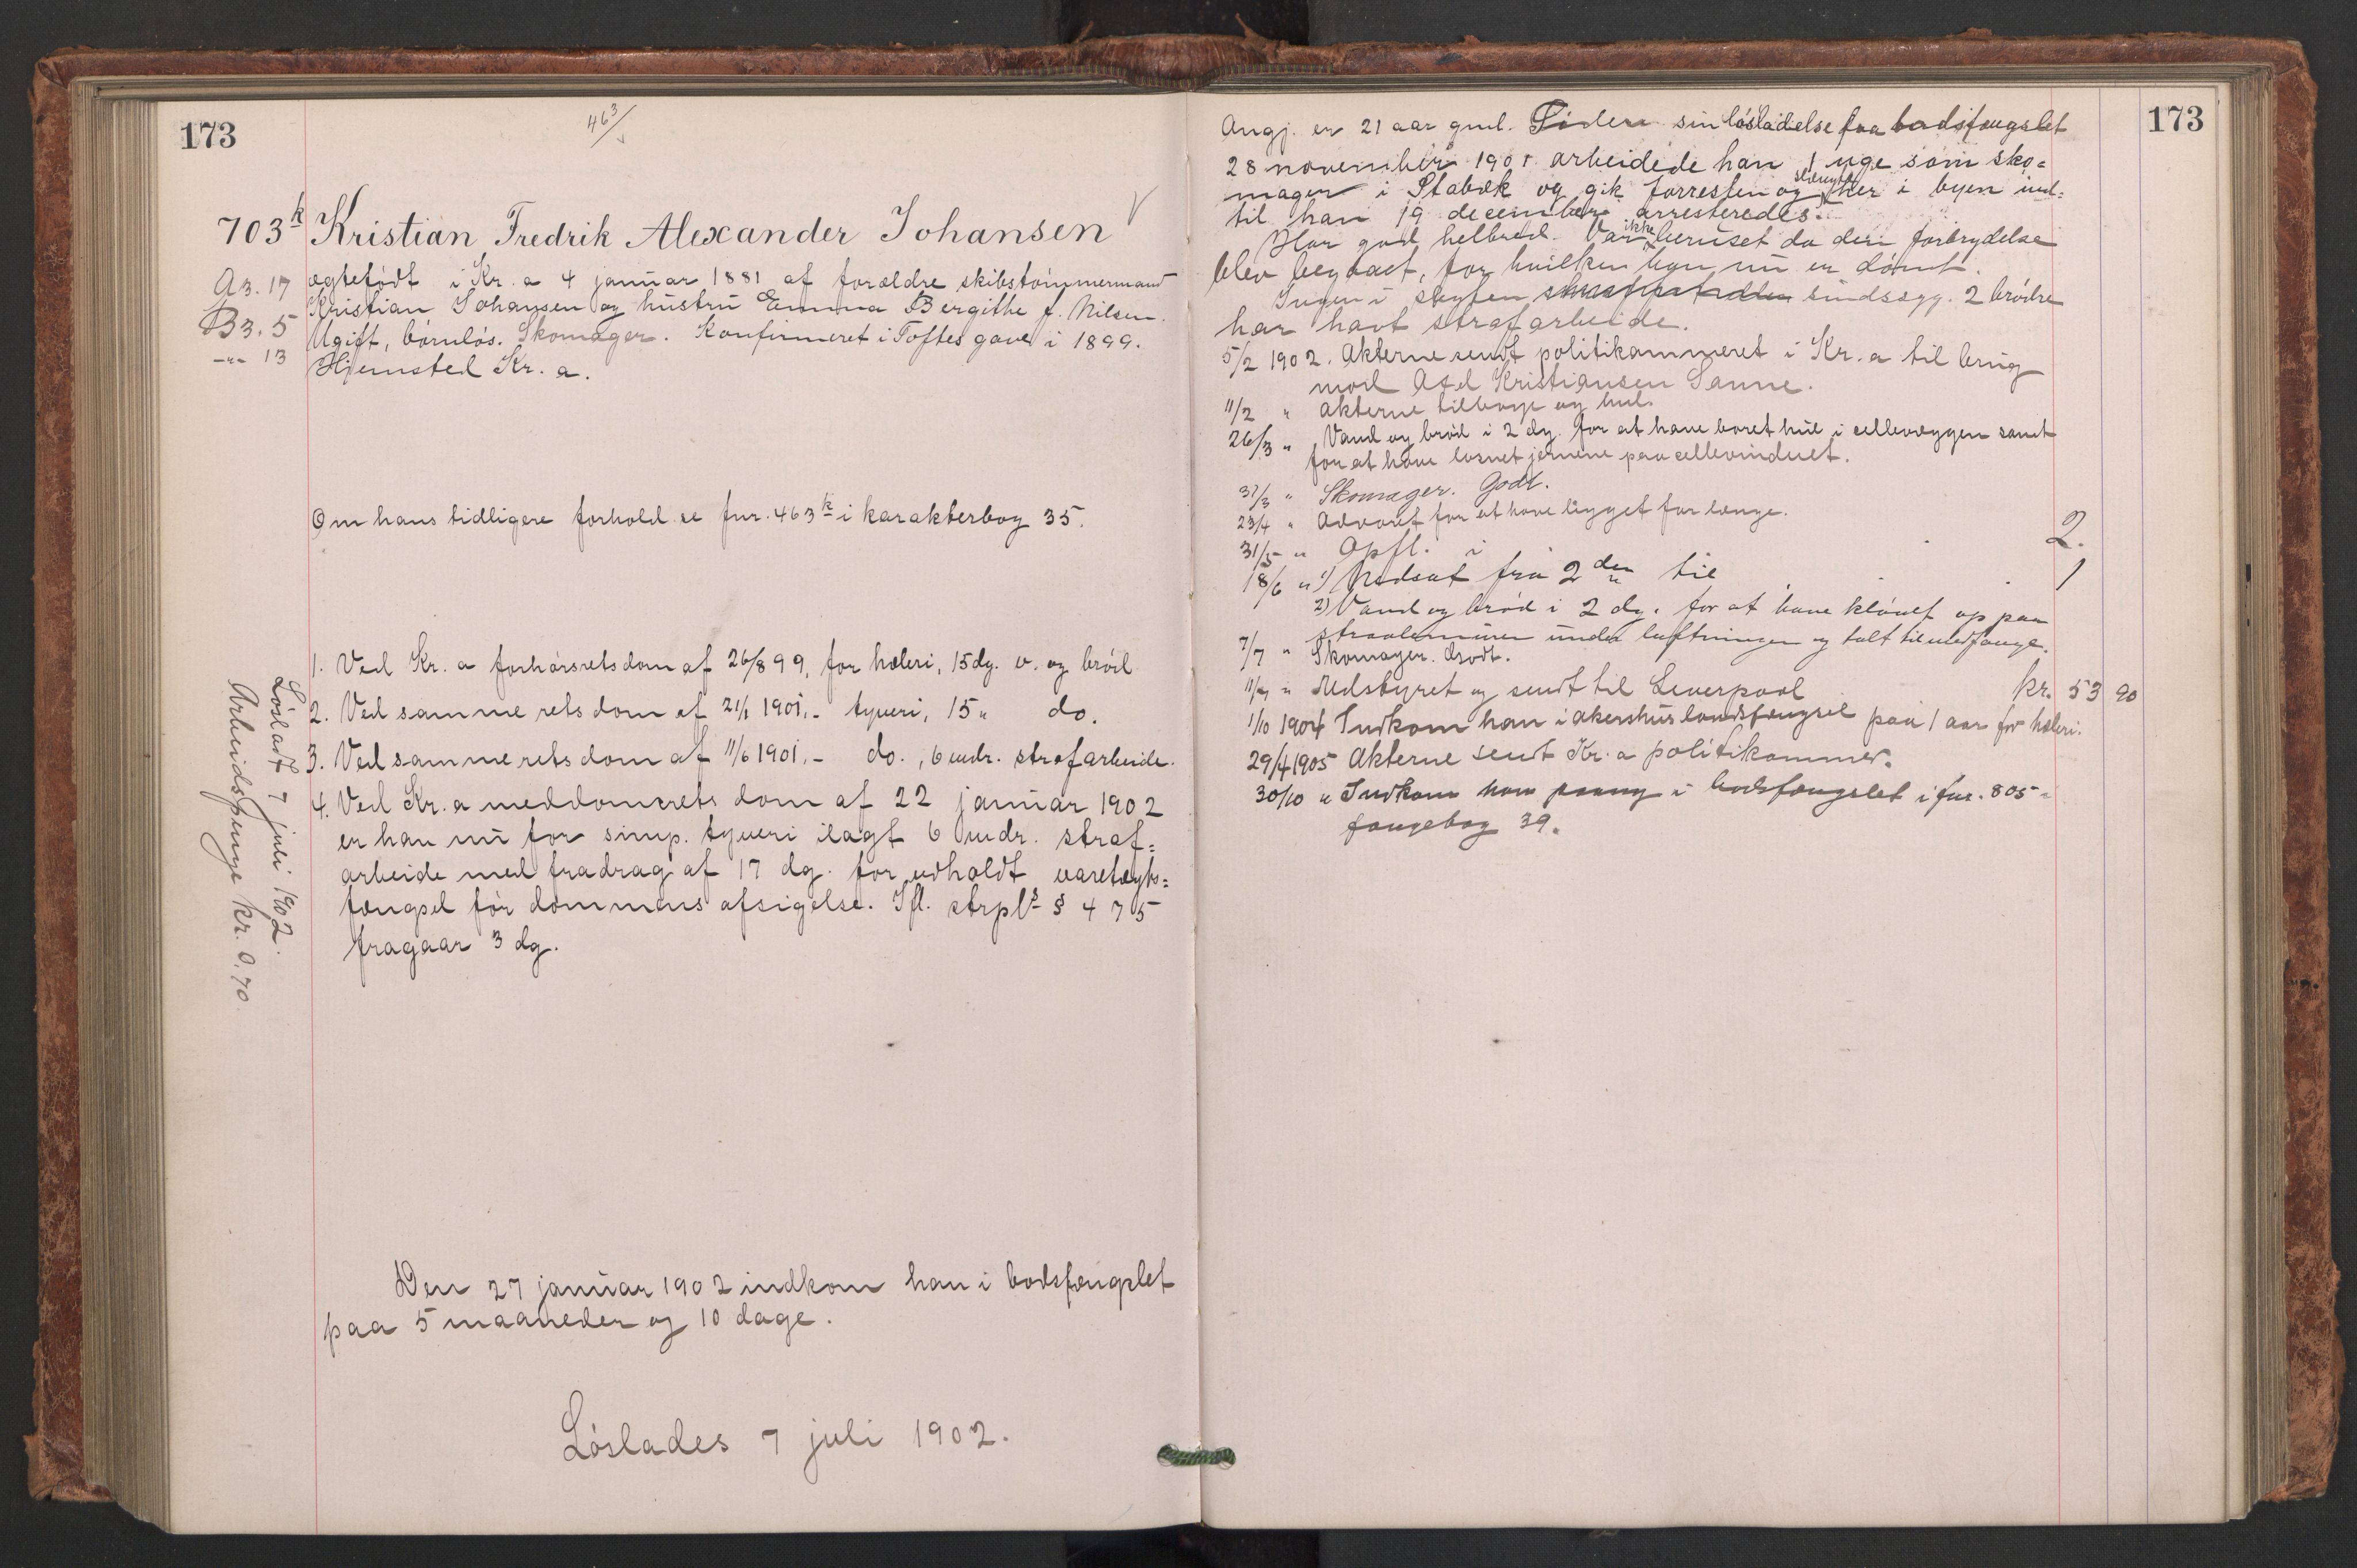 173
463/
703k Kristian Fredrik Alexander Johansen
A3. 17
B3. 5
-"- 13
ægtefødt i Kr. a 4 januar 1881 af forældre skibstømmermand
Kristian Johansen og hustru Emma Bergithe f. Nilsen.
Ugift, børnløs. Skomager. Konfirmeret i Toftes gave i 1899.
Hjemsted Kr. a.
Om hans tidligere forhold se fnr. 463k i karakterbog 35.
1. Ved Kr. a forhørsretsdom af 26/8 99, for hæleri, 15 dg. v. og brød
2. Ved samme rets dom af 21/1 1901,- tyveri, 15 " do.
3. Ved samme rets dom af 11/6 1901,- do., 6 mdr. strafarbeide.
4. Ved Kr. a meddomsrets dom af 22 januar 1902
er han nu for simp. tyveri ilagt 6 mdr. straf=
arbeide med fradrag af 17 dg. for udholdt varetægts=
fængsel før dommens afsigelse. Ifl. strpls § 475
fragaar 3 dg.
Løsladt 7 juli 1902.
Arbeidspenge kr. 0,70
Den 27 januar 1902 indkom han i bodsfængslet
paa 5 maaneder og 10 dage.
Løslades 7 juli 1902.
173
Angj. er 21 aar gml. Siden sin løsladelse fra bodsfængslet
28 november 1901 arbeidede han 1 uge som sko=
mager i Stabæk og gik forresten og slængte her i byen ind=
til han 19 december arresteredes.
Har god helbred. Var ikke beruset da den forbrydelse
blev begaaet, for hvilken han nu er dømt.
Ingen i slegten sindssyg. 2 brødre
har havt strafarbeide.
5/2 1902. Akterne sendt politikammeret i Kr. a til brug
mod Axel Kristiansen Sanne.
11/2 " Akterne tilbage og hul.
26/3 " Vand og brød i 2 dg. for at have boret hul i cellevæggen samt
for at have løsnet jernene paa cellevinduet.
31/3 " Skomager. Godt.
23/4 " Advaret for at have ligget for længe.
31/5 " Opfl. i 2.
18/6 " 1) Nedsat fra 2den til 1
2) Vand og brød i 2 dg. for at have kløvet op paa
straalemuren under luftningen og talt til medfange.
7/7 " Skomager. Godt.
11/7 " Udstyret og sendt til Liverpool kr. 53 90
1/10 1904 Indkom han i akershus landsfængsel paa 1 aar for hæleri.
29/4 1905 Akterne sendt Kr. a politikammer.
30/10 " Indkom han paany i bodsfængslet i fnr. 805 -
fangebog 39.